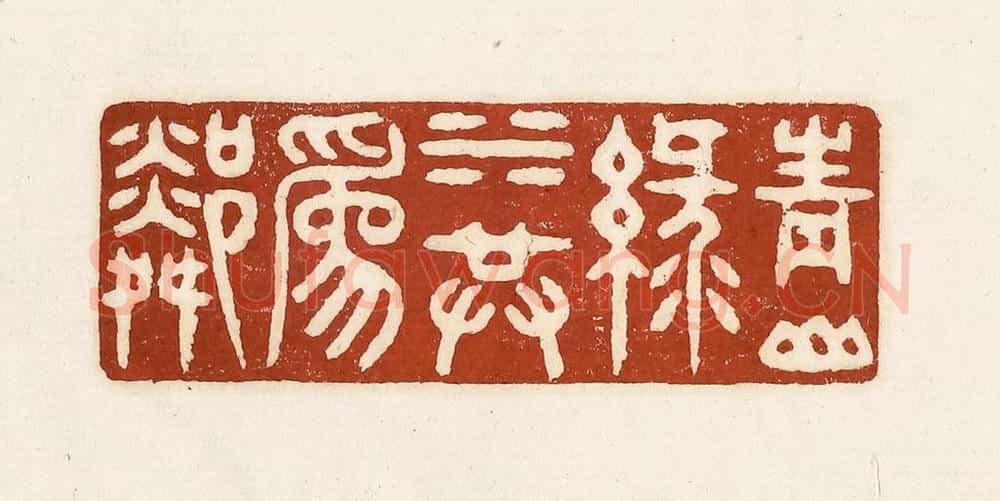 青山
綠
水共
爲
鄰
Shufawang.CN